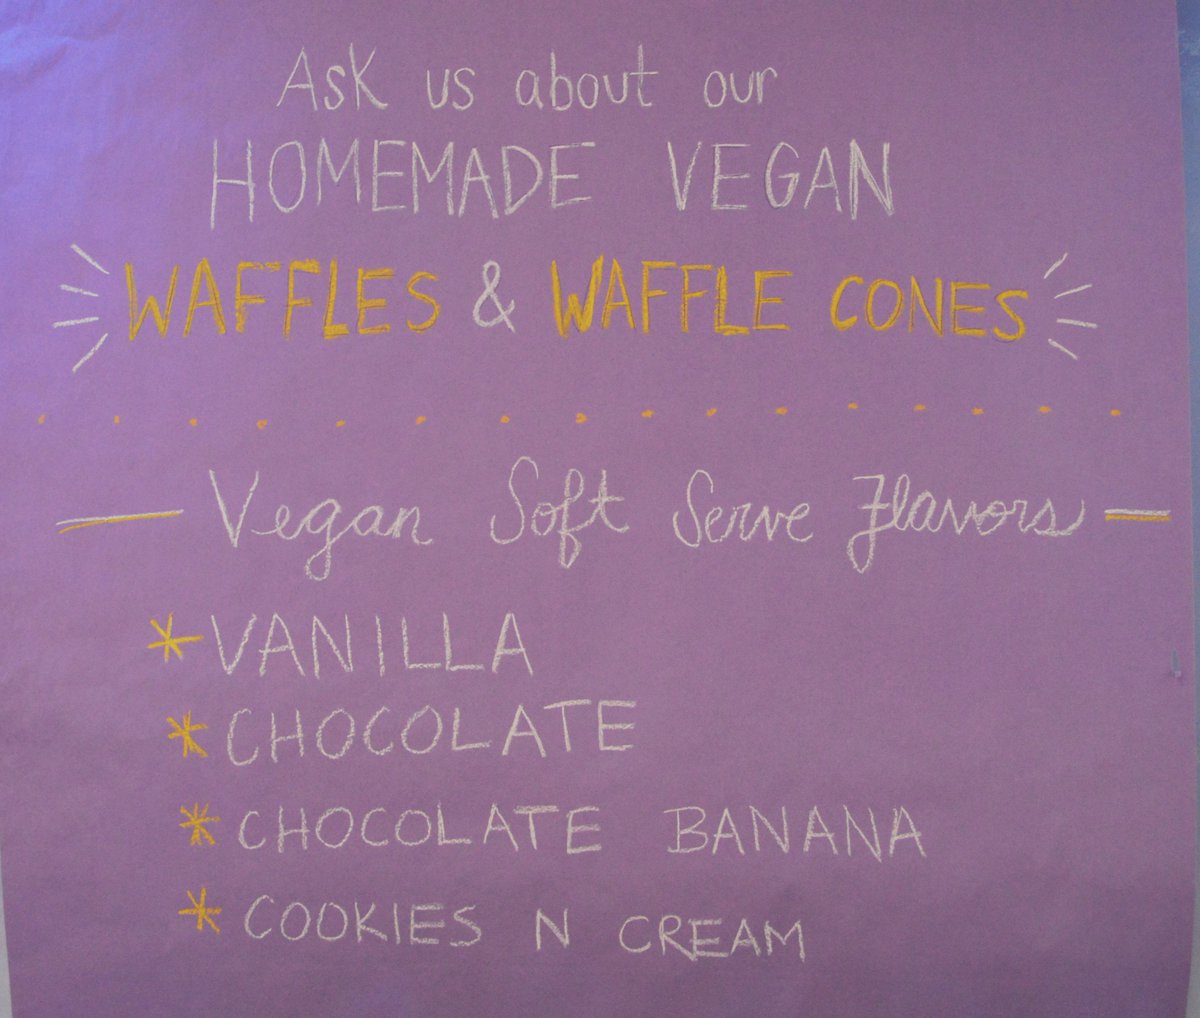 Ask us about our
HOMEMADE VEGAN
WAFFLES & WAFFLE CONES
Vegan Soft Serve Flavors
* VANILLA
* CHOCOLATE
* CHOCOLATE BANANA
* COOKIES N CREAM